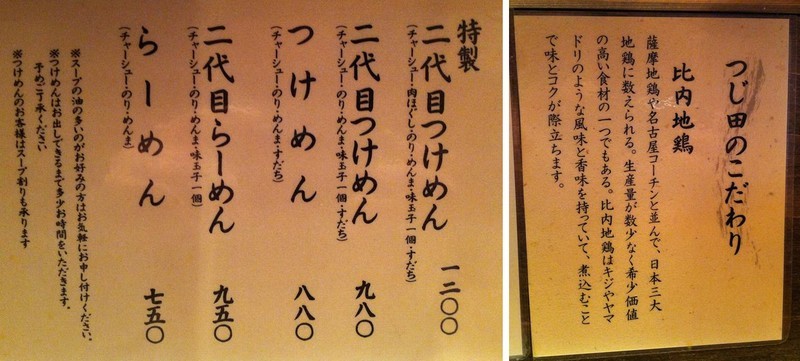 特製
二代目つけめん 一二〇〇
(チャーシュー・肉ほぐし・のり・めんま・味玉子一個・すだち)
二代目つけめん 九八〇
(チャーシュー・のり・めんま・味玉子一個・すだち)
つけめん 八八〇
(チャーシュー・のり・めんま・すだち)
二代目らーめん 九五〇
(チャーシュー・のり・めんま・味玉子一個)
らーめん 七五〇
(チャーシュー・のり・めんま)
※スープの油の多いのがお好みの方はお気軽にお申し付けください。
※つけめんはお出しできるまで多少お時間をいただきます。
予めご了承ください
※つけめんのお客様はスープ割りも承ります
つじ田のこだわり
比内地鶏
薩摩地鶏や名古屋コーチンと並んで、日本三大
地鶏に数えられる。生産量が数少なく希少価値
の高い食材の一つでもある。比内地鶏はキジやヤマ
ドリのような風味と香味を持っていて、煮込むこと
で味とコクが際立ちます。